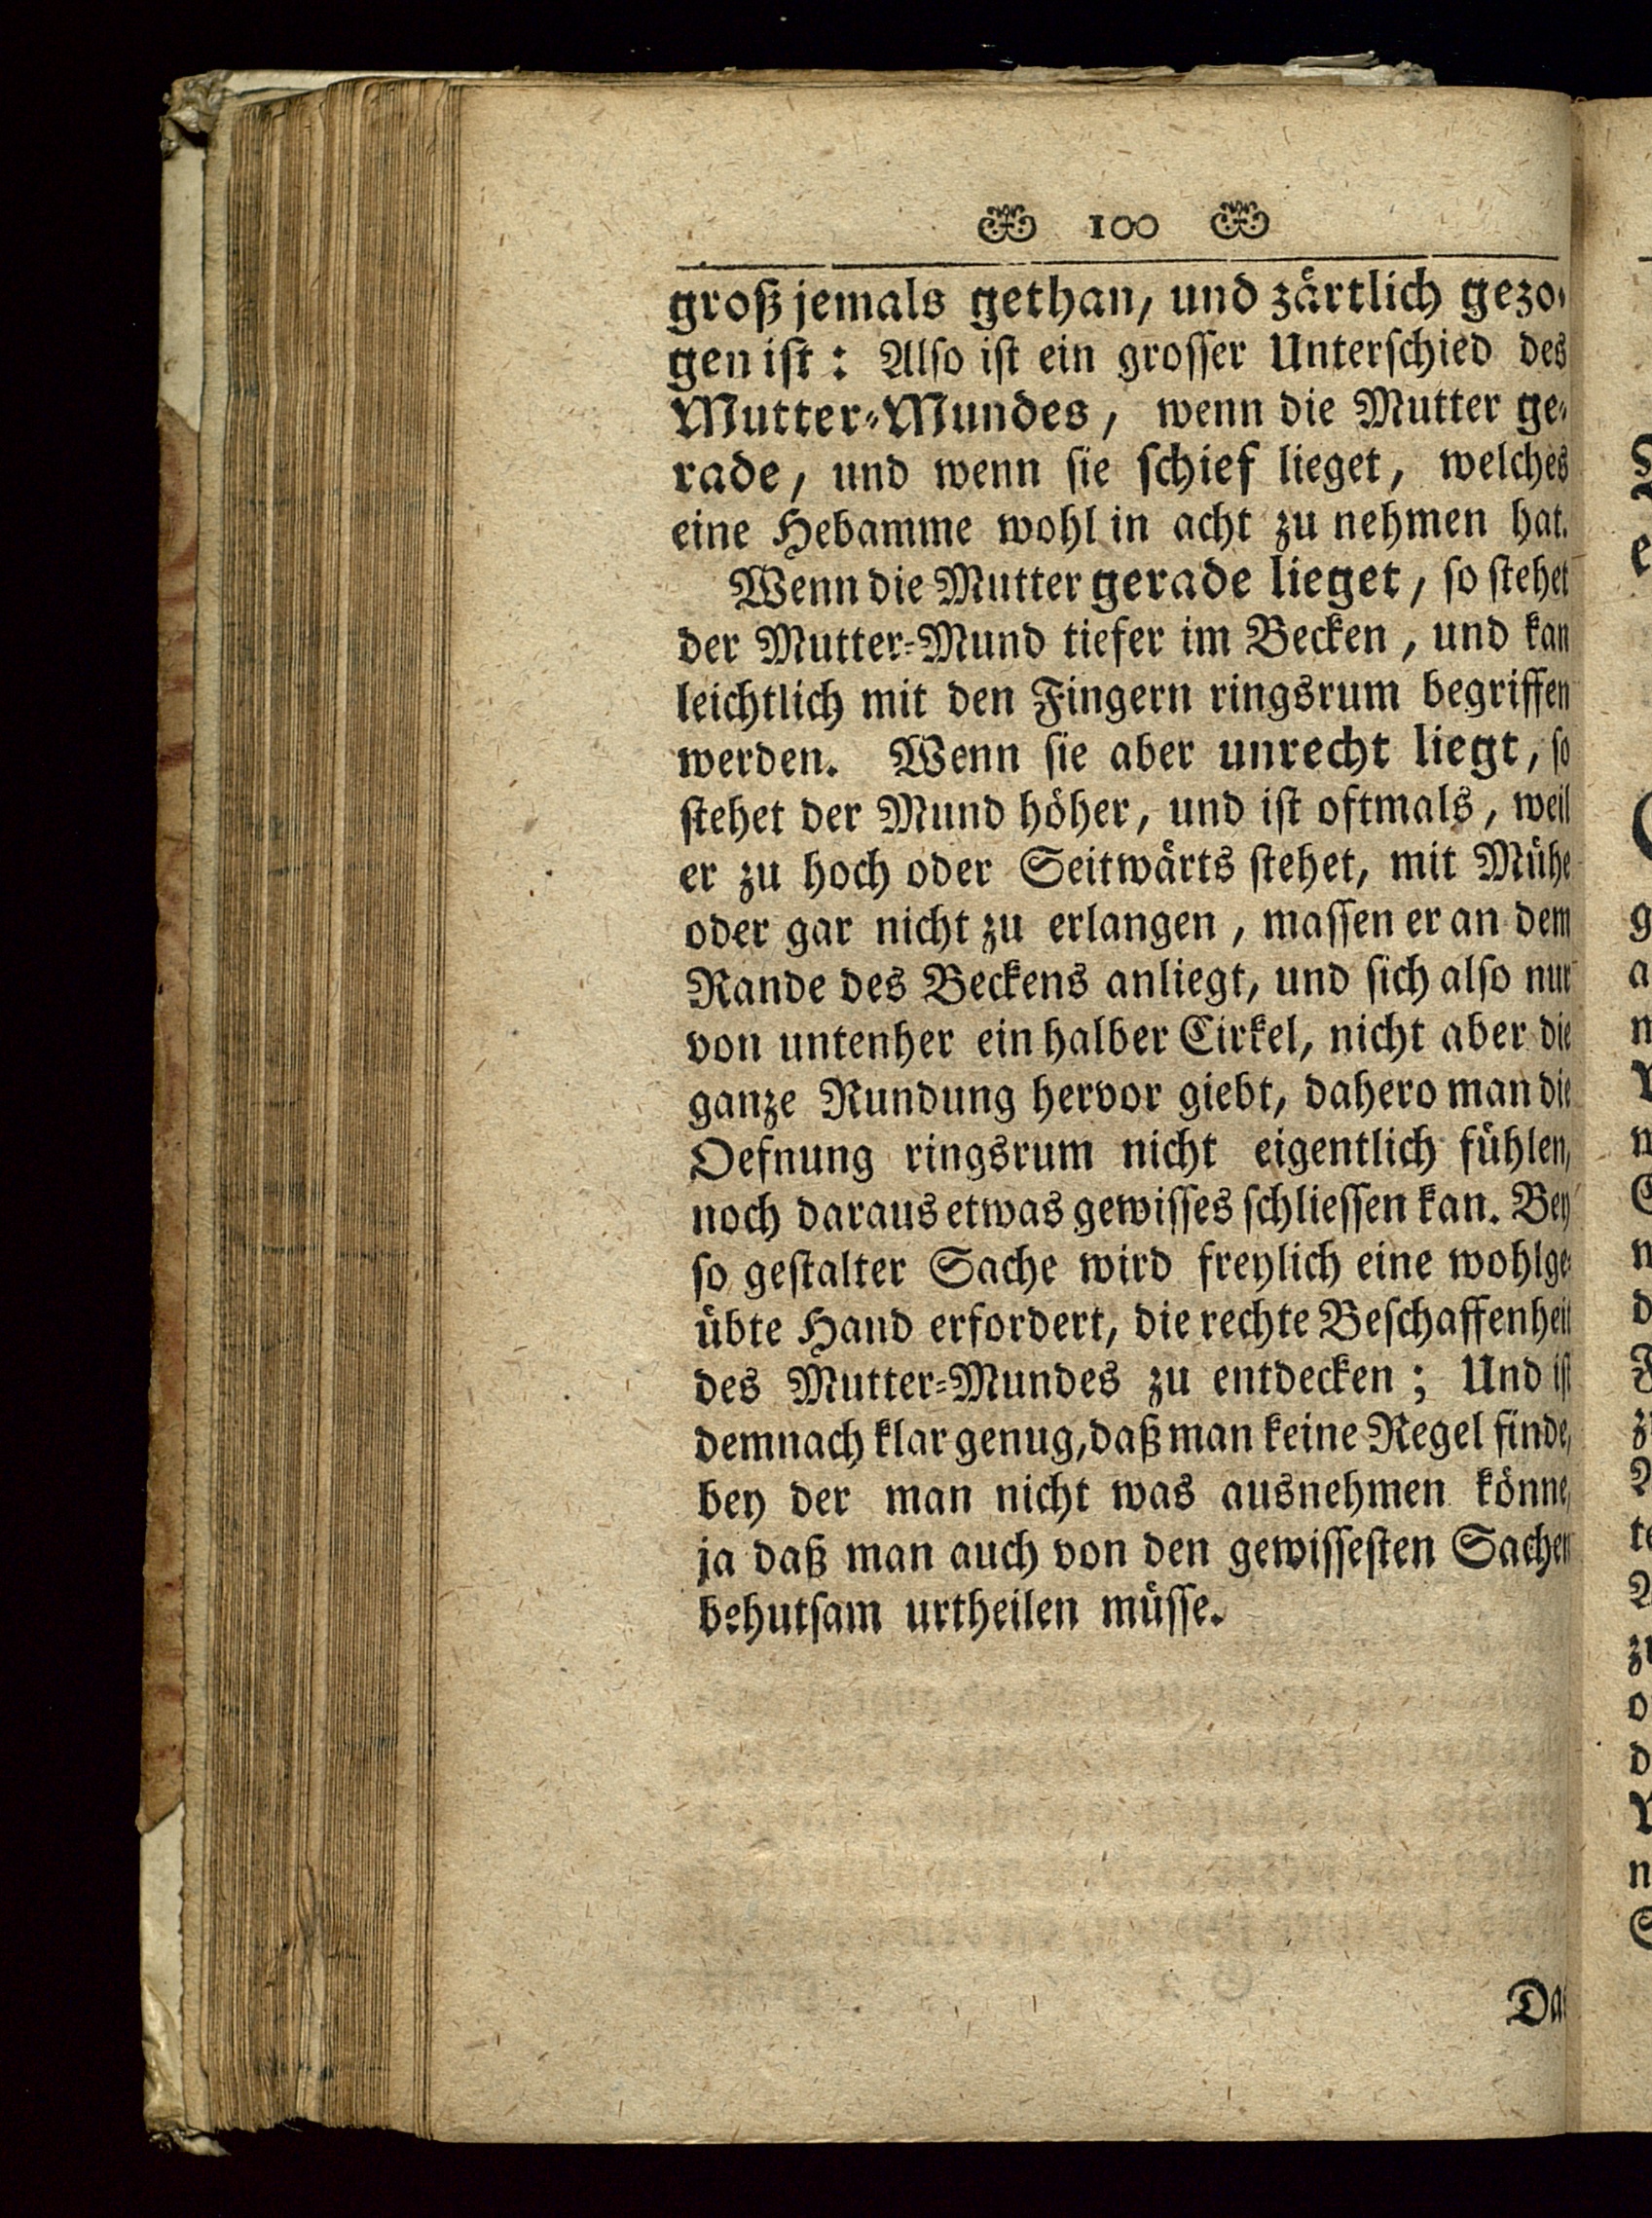 100
groß jemals gethan, und zärtlich gezo-
gen ist: Also ist ein grosser Unterschied des
Mutter-Mundes, wenn die Mutter ge-
rade, und wenn sie schief lieget, welches
eine Hebamme wohl in acht zu nehmen hat.
Wenn die Mutter gerade lieget, so stehet
der Mutter-Mund tiefer im Becken, und kan
leichtlich mit den Fingern ringsrum begriffen
werden. Wenn sie aber unrecht liegt, so
stehet der Mund höher, und ist oftmals, weil
er zu hoch oder Seitwärts stehet, mit Mühe
oder gar nicht zu erlangen, massen er an dem
Rande des Beckens anliegt, und sich also nur
von untenher ein halber Cirkel, nicht aber die
ganze Rundung hervor giebt, dahero man die
Oefnung ringsrum nicht eigentlich fühlen,
noch daraus etwas gewisses schliessen kan. Bey
so gestalter Sache wird freylich eine wohlge-
übte Hand erfordert, die rechte Beschaffenheit
des Mutter-Mundes zu entdecken; Und ist
demnach klar genug, daß man keine Regel finde,
bey der man nicht was ausnehmen könne,
ja daß man auch von den gewissesten Sachen
behutsam urtheilen müsse.